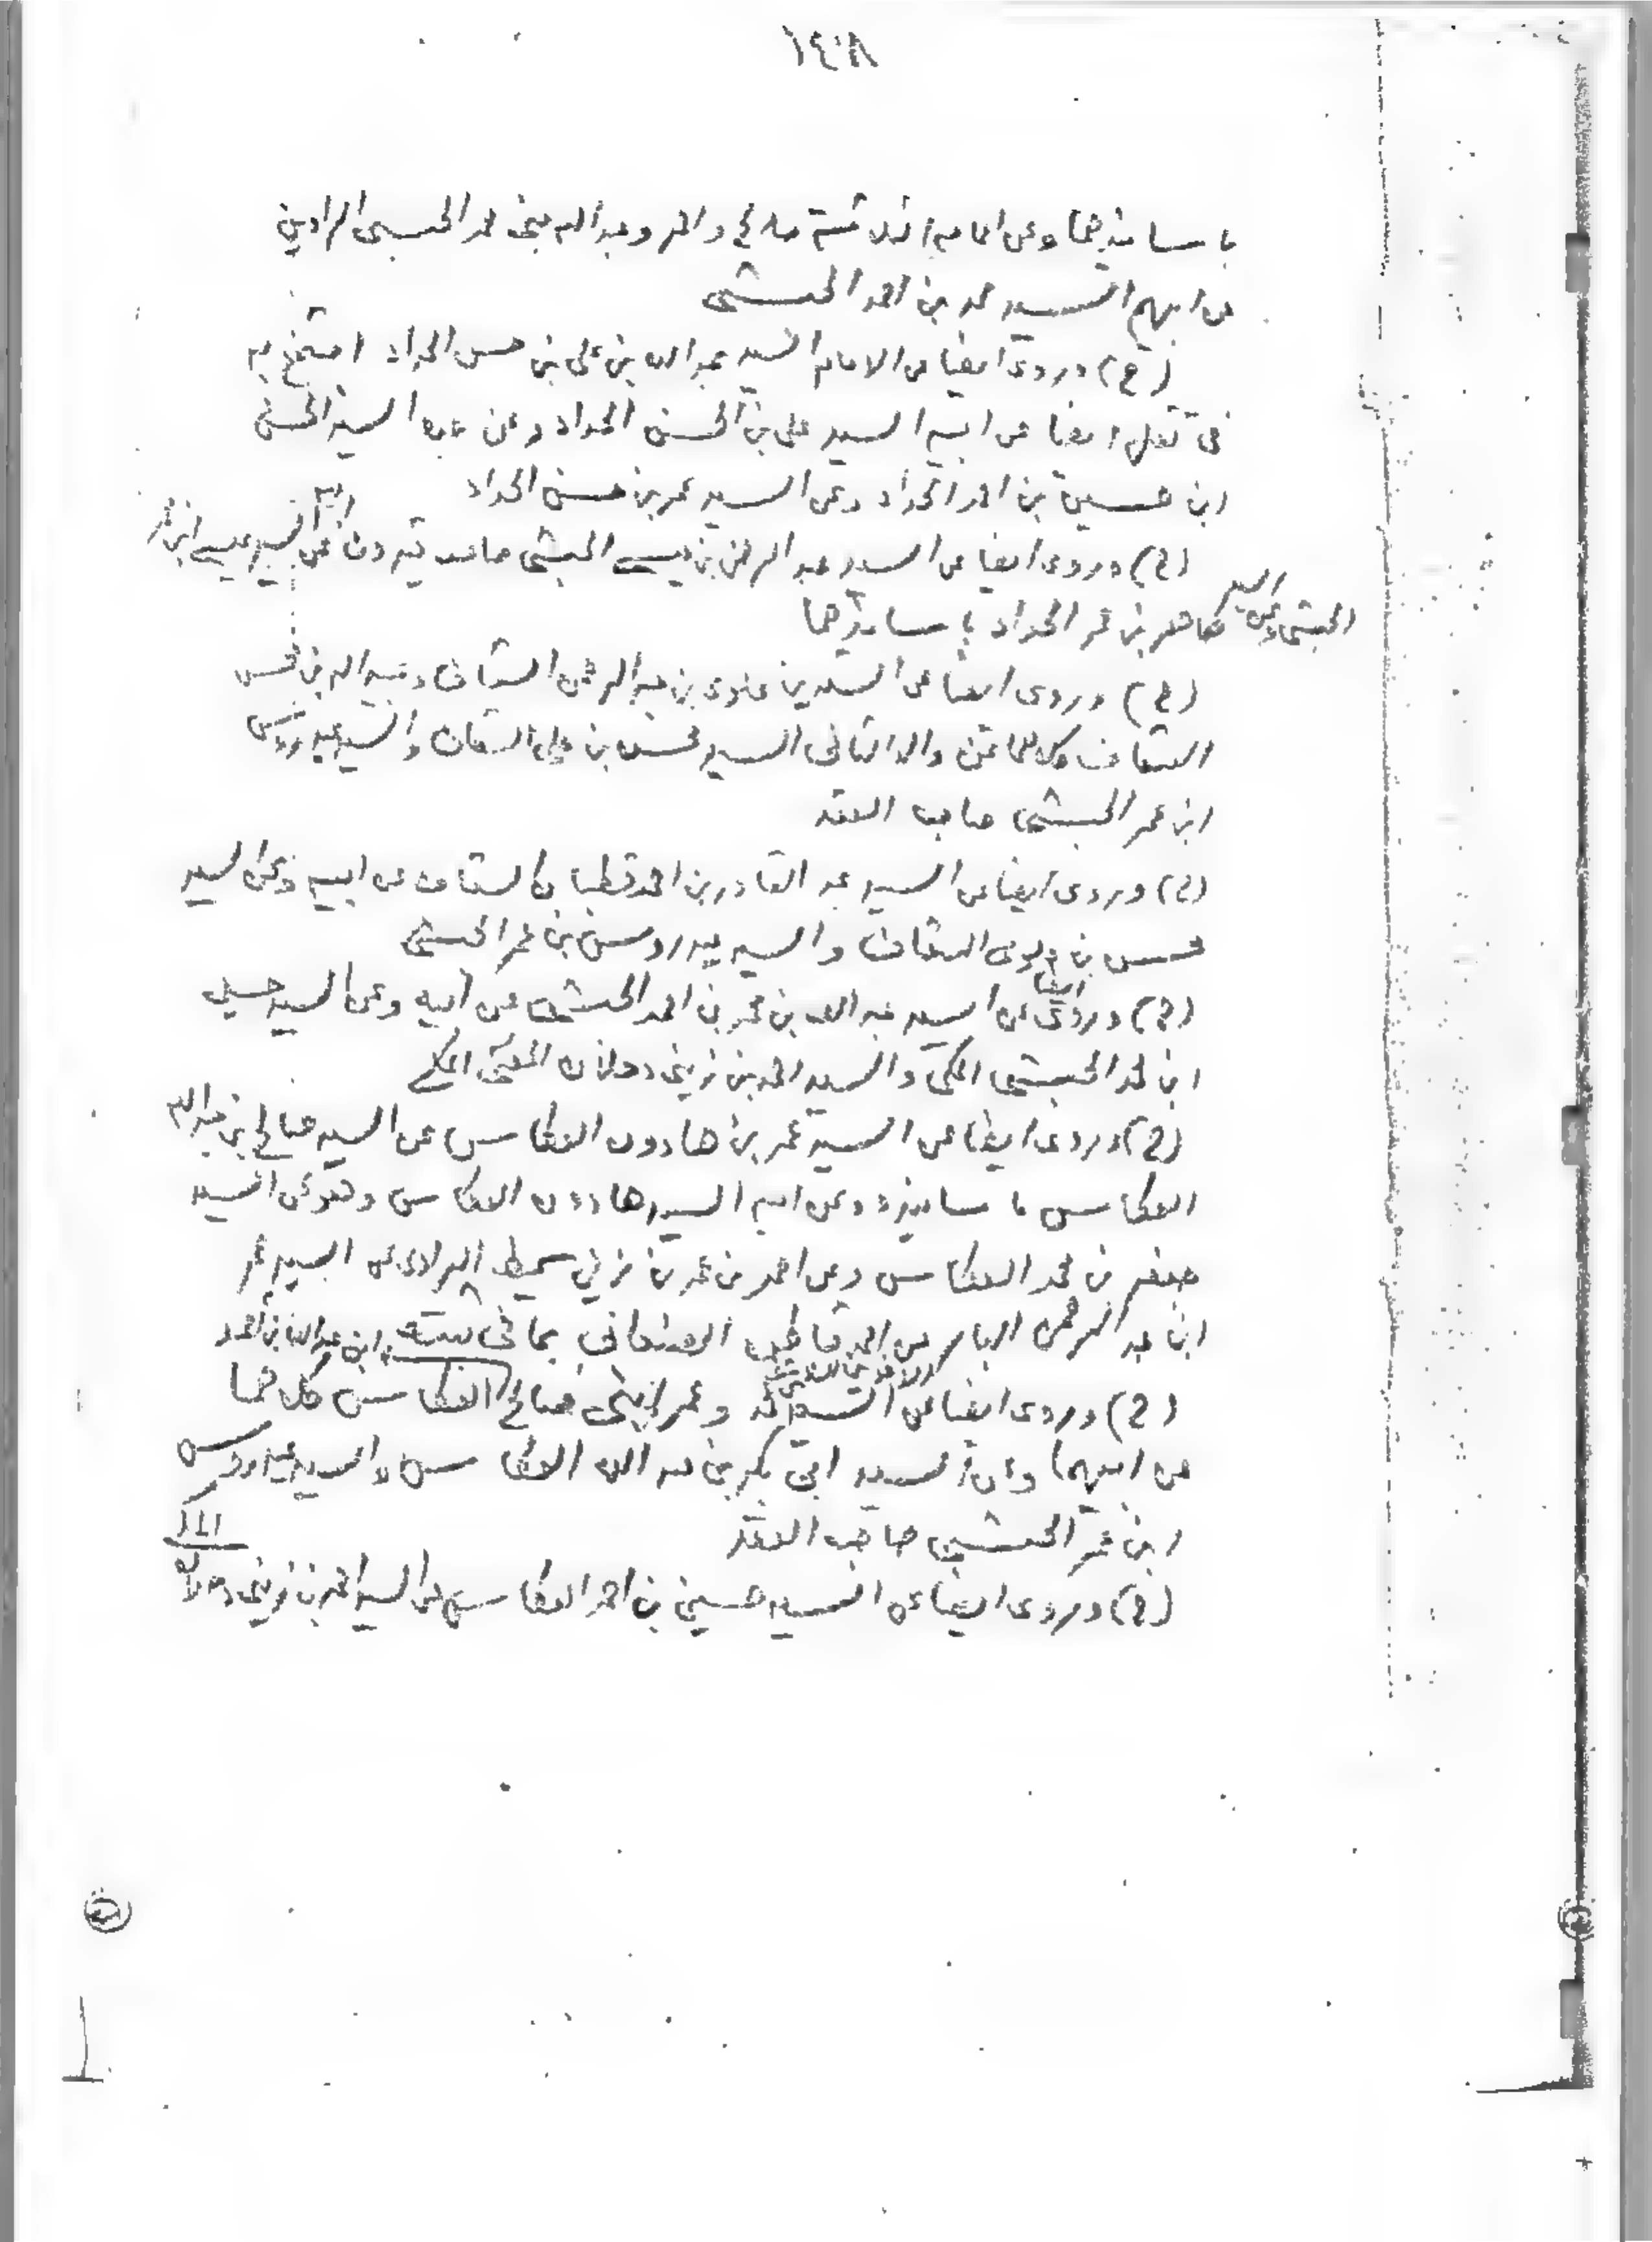 ١٤٠٨
باسانيدهما وعن امامي الثلاثة صالح واحمد وعبدالله بني محمد الحبشي
عن ابيهم السيد محمد بن احمد الحبشي
(ح) وروى ايضا عن الامام السيد عبدالله بن علي بن حسن الحداد
ايضا عن ابيه السيد علي بن الحسن الحداد وعن السيد
ابن حسين بن احمد الحداد وعن السيد عمر بن حسن الحداد
(ح) وروى ايضا عن السيد عبد الرحمن بن عيسى الحبشي صاحب قيدون عن ابيه السيد عيسى ابن محمد
الحبشي وعن السيد طاهر بن عمر الحداد باسانيدهما
(ح) وروى ايضا عن السيدين علوي بن عبدالرحمن السقاف وعبدالله بن محسن
السقاف كلاهما عن والد الثاني السيد محسن بن علوي السقاف والسيد عيدروس
ابن عمر الحبشي صاحب العقد
(ح) وروى ايضا عن السيد عبد القادر بن احمد قطبان السقاف عن ابيه وعن السيد
محسن بن علوي السقاف والسيد عيدروس بن عمر الحبشي
(ح) وروى ايضا عن السيد عبد الله بن محمد بن احمد الحبشي عن ابيه وعن السيد حسين
ابن محمد الحبشي المكي والسيد احمد بن زيني دحلان المفتي المكي
(ح) وروى ايضا عن السيد عمر بن هادون العطاس عن السيد صالح بن عبدالله
العطاس باسانيده وعن ابيه السيد هادون العطاس وهو عن السيد
جعفر بن محمد العطاس وعن احمد بن عمر بن زين سميط الاولى عن السيد عمر
ابن عبد الرحمن البار عن احمد قاطن الصنعاني بما في ثبته
(ح) وروى ايضا عن السيد محمد وعمر ابني صالح ابن عبدالله بن احمد العطاس كلاهما
عن ابيهما وعن السيد ابي بكر بن عبد الله العطاس والسيد عيدروس
ابن عمر الحبشي صاحب العقد
(ح) وروى ايضا عن السيد حسين بن احمد العطاس عن السيد احمد بن زيني دحلان